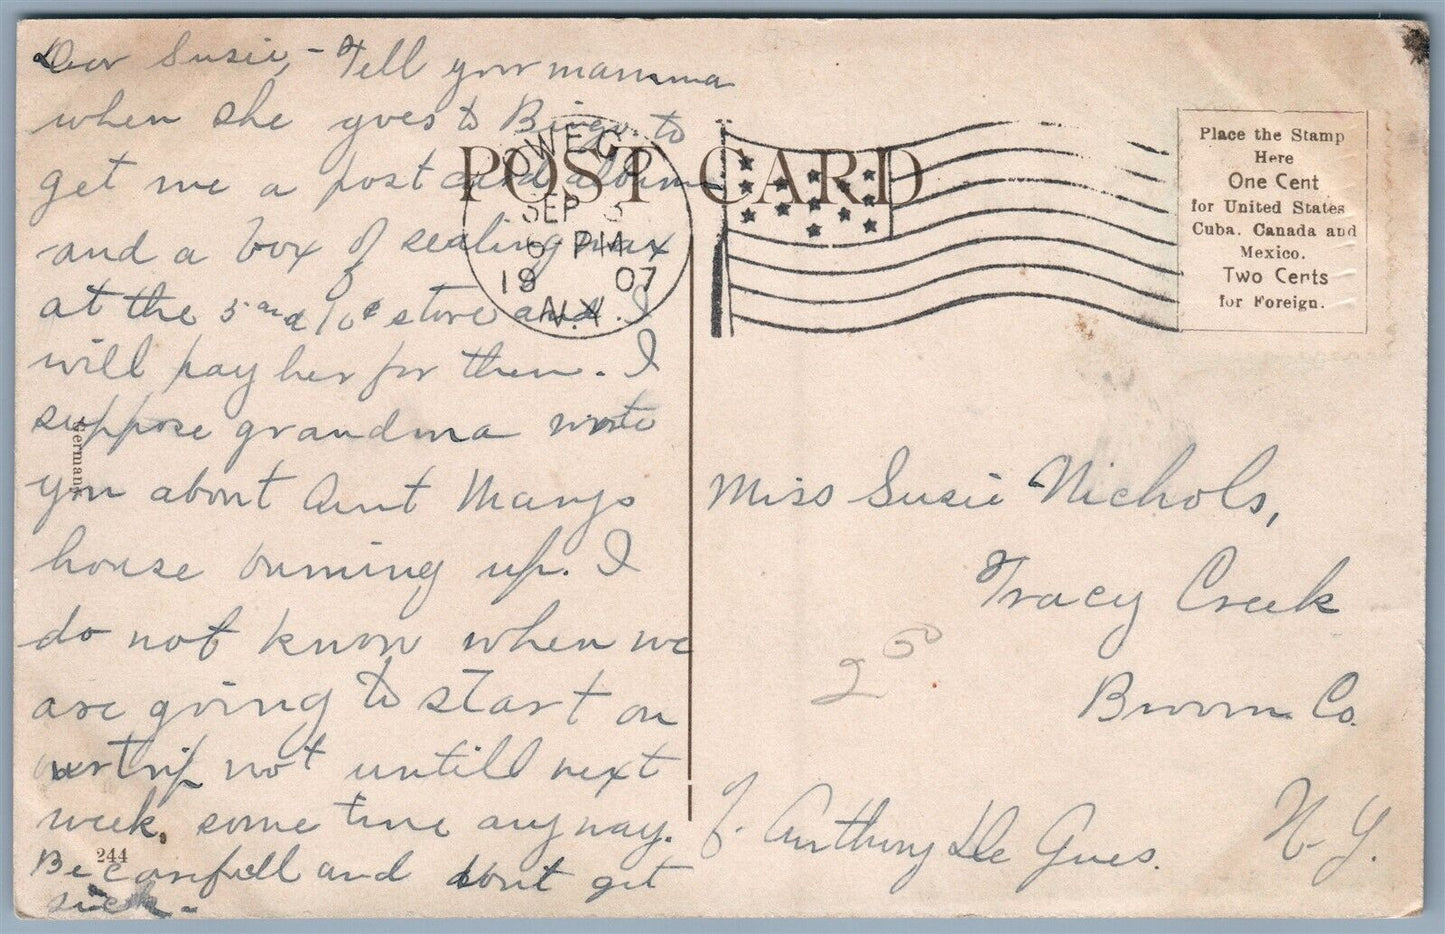 Dear Susie, - Tell your mamma
when she goes to Bingo. to
get me a post card album
and a box of sealing wax
at the 5 and 10¢ store and I
will pay her for them. I
suppose grandma wrote
you about Aunt Marys
house burning up. I
do not know when we
are going to start on
our trip not untill next
week, some time anyway.
Be carefull and dont get
sick.-
Germany
244
POST CARD
OWEGO
SEP 3
6 PM
1907
N.Y.
Place the Stamp
Here
One Cent
for United States
Cuba. Canada and
Mexico.
Two Cents
for Foreign.
Miss Susie Nichols,
Tracy Creek
Broom Co.
N. Y.
% Anthony De